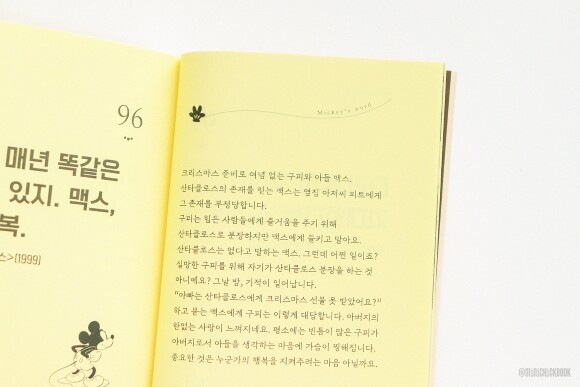 96
매년 똑같은
있지. 맥스,
복.
스>(1999)
Mickey's word
크리스마스 준비로 여념 없는 구피와 아들 맥스.
산타클로스의 존재를 믿는 맥스는 옆집 아저씨 피트에게
그 존재를 부정당합니다.
구피는 힘든 사람들에게 즐거움을 주기 위해
산타클로스로 분장하지만 맥스에게 들키고 말아요.
산타클로스는 없다고 말하는 맥스. 그런데 어쩐 일이죠?
실망한 구피를 위해 자기가 산타클로스 분장을 하는 것
아니에요? 그날 밤, 기적이 일어납니다.
"아빠는 산타클로스에게 크리스마스 선물 못 받았어요?"
하고 묻는 맥스에게 구피는 이렇게 대답합니다. 아버지의
한없는 사랑이 느껴지네요. 평소에는 빈틈이 많은 구피가
아버지로서 아들을 생각하는 마음에 가슴이 찡해집니다.
중요한 것은 누군가의 행복을 지켜주려는 마음 아닐까요.